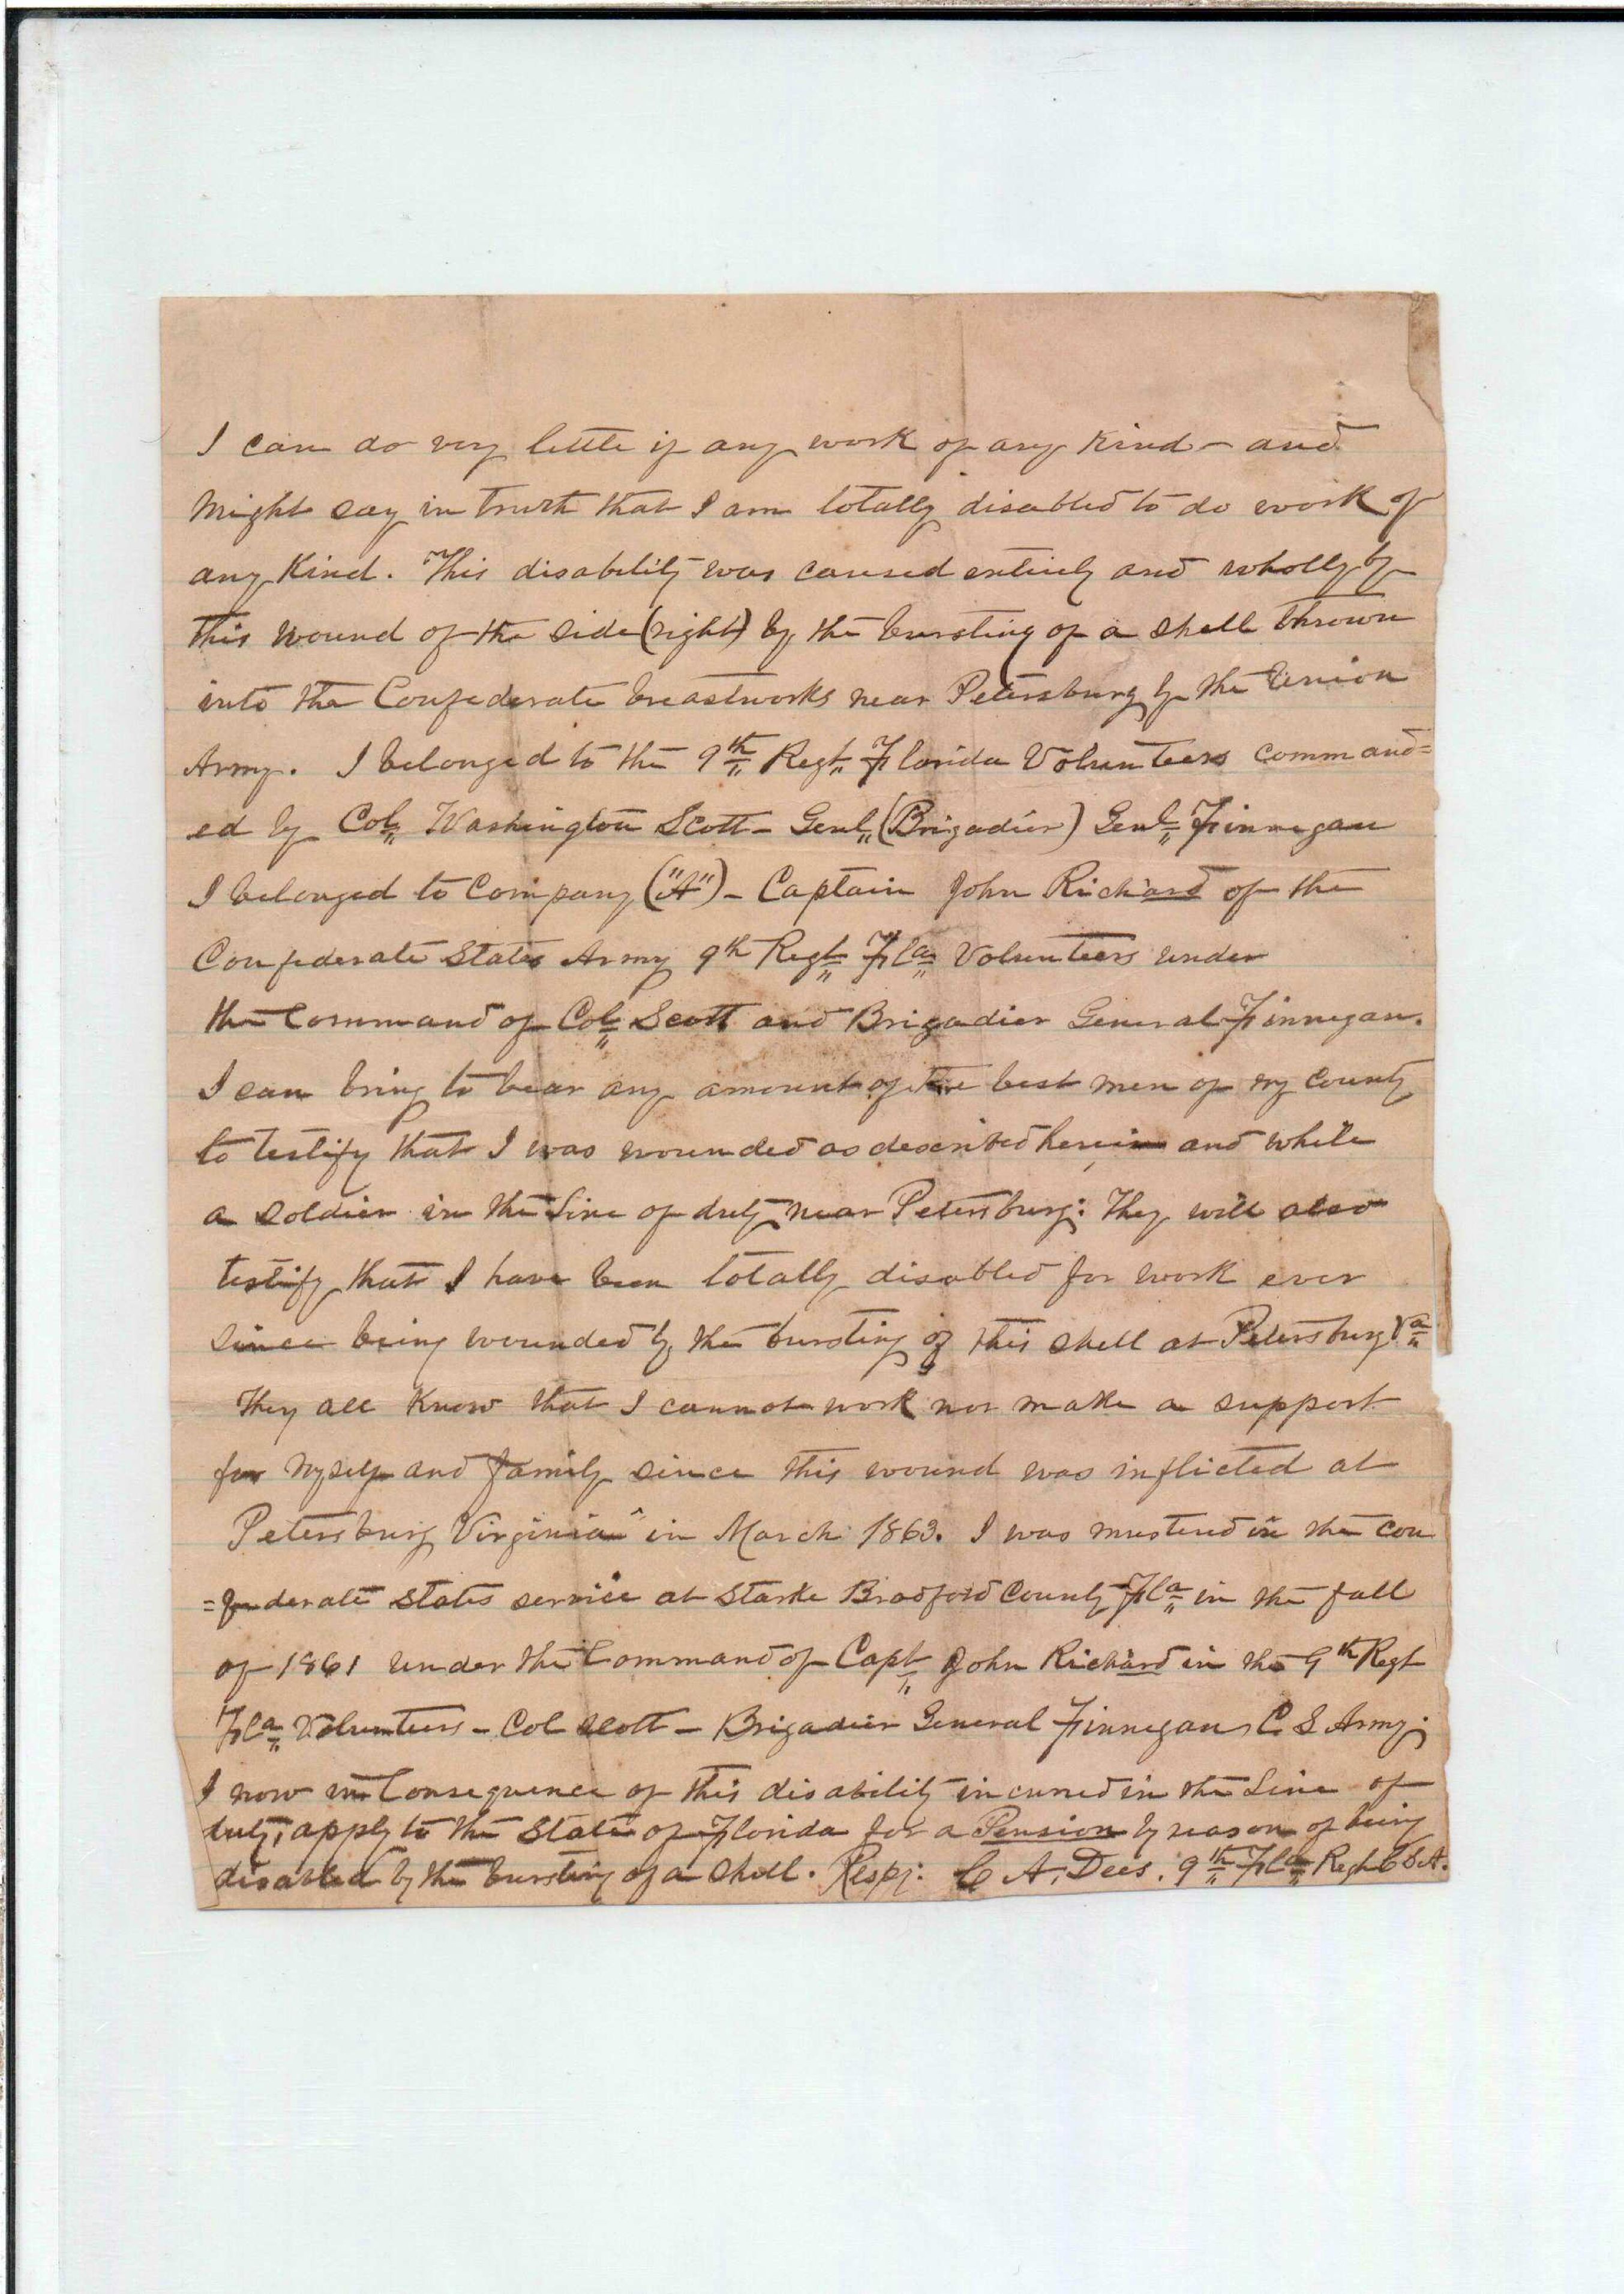 I can do very little if any work of any kind – and
might say in truth that I am totally disabled to do work of
any kind. This disability was caused entirely and wholly by
this wound of the side (right) by the bursting of a shell thrown
into the Confederate breastworks near Petersburg by the Union
Army. I belonged to the 9th Regt Florida Volunteers command=
ed by Col Washington Scott – Genl (Brigadier) Genl Finnegan
I belonged to Company ("A") – Captain John Richard of the
Confederate States Army 9th Regt Fla Volunteers under
the Command of Col Scott and Brigadier General Finnegan.
I can bring to bear any amount of the best men of my county
to testify that I was wounded as described herein and while
a soldier in the line of duty near Petersburg: They will also
testify that I have been totally disabled for work ever
since being wounded by the bursting of this shell at Petersburg Va
They all know that I cannot work nor make a support
for myself and family since this wound was inflicted at
Petersburg Virginia in March 1863. I was mustered in the Con
=federate States service at Starke Bradford County Fla in the fall
of 1861 under the Command of Capt John Richard in the 9th Regt
Fla Volunteers – Col Scott – Brigadier General Finnegan C S Army.
I now in Consequence of this disability incurred in the Line of
duty, apply to the State of Florida for a Pension by reason of being
disabled by the bursting of a shell. Respy: C A. Dees. 9th Fla Regt C S A.